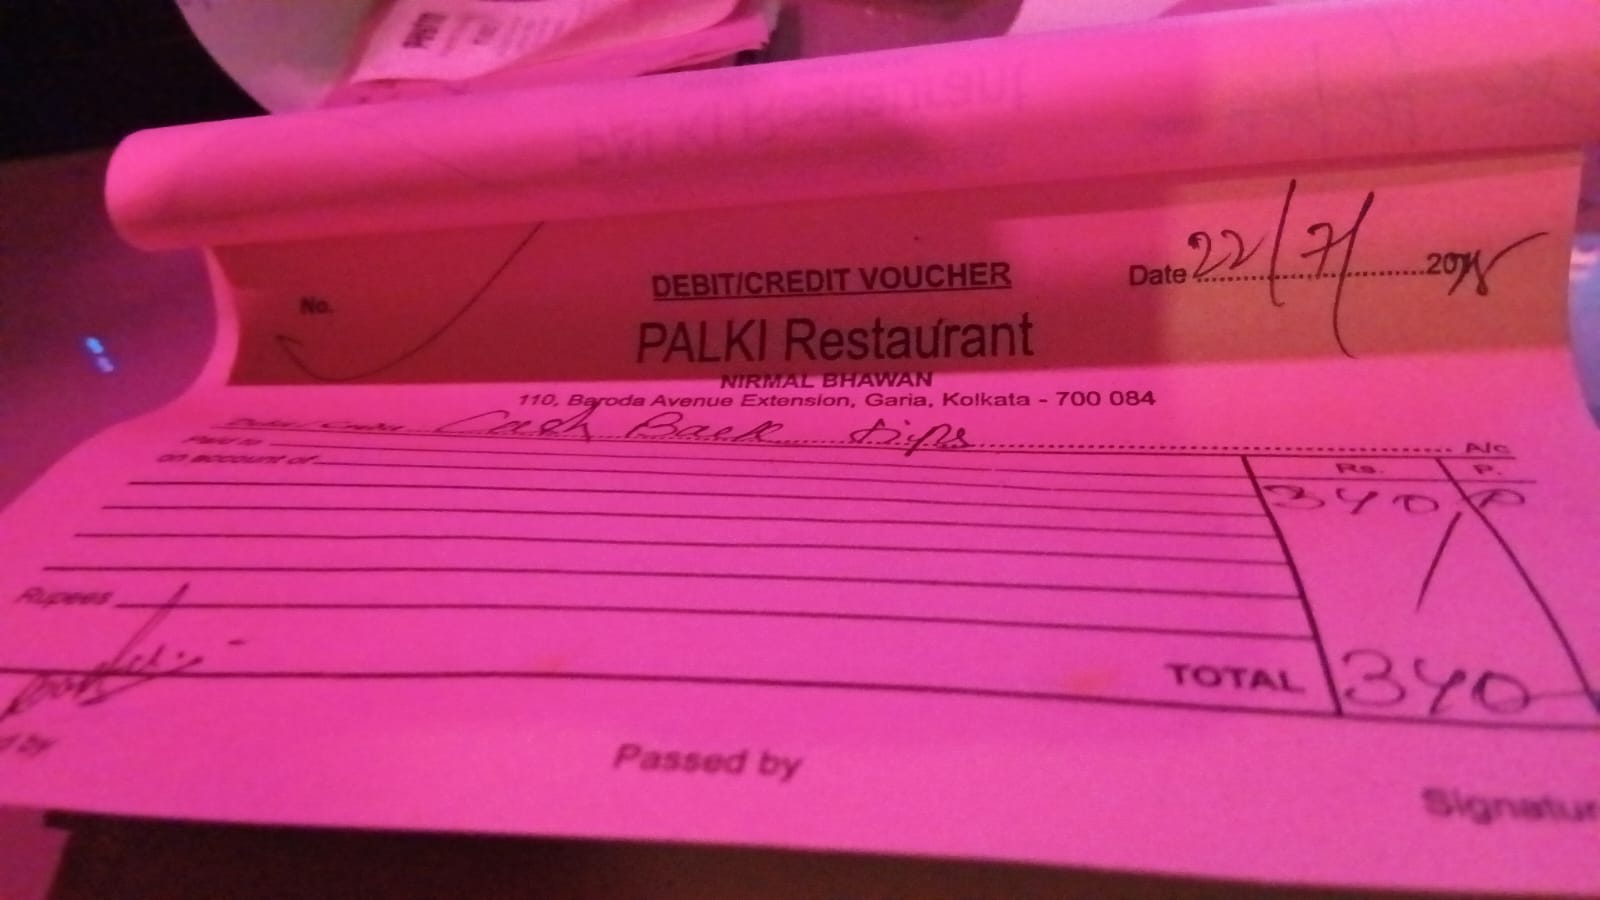 DEBIT/CREDIT VOUCHER
Date 22/7/ 20
No.
PALKI Restaurant
NIRMAL BHAWAN
110, Baroda Avenue Extension, Garia, Kolkata - 700 084
Debit / Credit Cash Back tips A/c
Paid to
on account of
Rs. P.
340
Rupees
TOTAL 340
d by Passed by Signatur